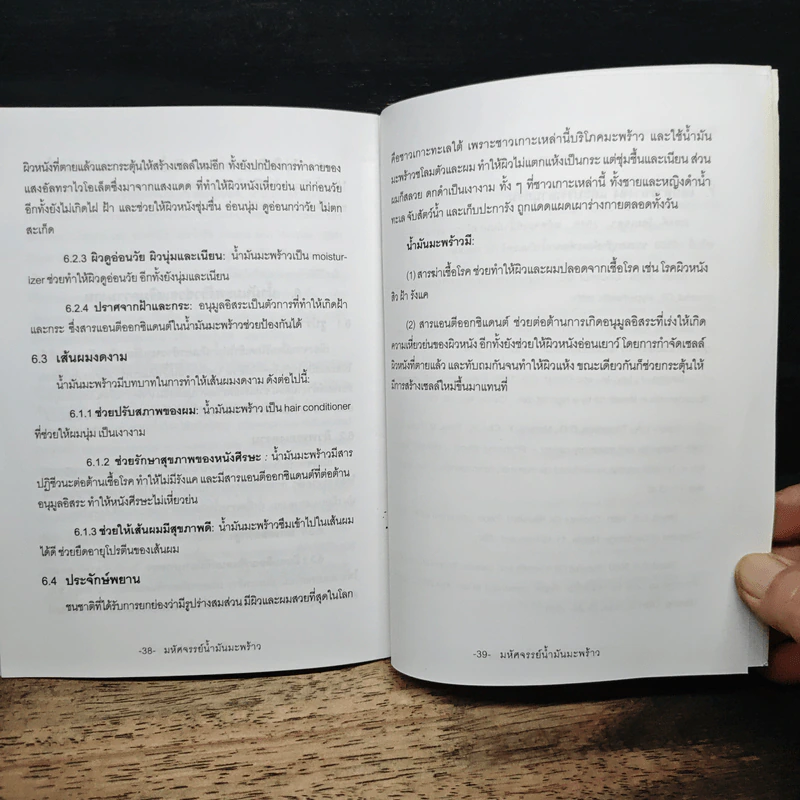 ผิวหนังที่ตายแล้วและกระตุ้นให้สร้างเซลล์ใหม่อีก ทั้งยังปกป้องการทำลายของ
แสงอัลทราไวโอเล็ตซึ่งมาจากแสงแดด ที่ทำให้ผิวหนังเหี่ยวย่น แก่ก่อนวัย
อีกทั้งยังไม่เกิดไฝ ฝ้า และช่วยให้ผิวหนังชุ่มชื่น อ่อนนุ่ม ดูอ่อนกว่าวัย ไม่ตก
สะเก็ด
6.2.3 ผิวดูอ่อนวัย ผิวนุ่มและเนียน: น้ำมันมะพร้าวเป็น moistur-
izer ช่วยทำให้ผิวดูอ่อนวัย อีกทั้งยังนุ่มและเนียน
6.2.4 ปราศจากฝ้าและกระ: อนุมูลอิสระเป็นตัวการที่ทำให้เกิดฝ้า
และกระ ซึ่งสารแอนตีออกซิแดนต์ในน้ำมันมะพร้าวช่วยป้องกันได้
6.3 เส้นผมงดงาม
น้ำมันมะพร้าวมีบทบาทในการทำให้เส้นผมงดงาม ดังต่อไปนี้:
6.1.1 ช่วยปรับสภาพของผม: น้ำมันมะพร้าว เป็น hair conditioner
ที่ช่วยให้ผมนุ่ม เป็นเงางาม
6.1.2 ช่วยรักษาสุขภาพของหนังศีรษะ : น้ำมันมะพร้าวมีสาร
ปฏิชีวนะต่อต้านเชื้อโรค ทำให้ไม่มีรังแค และมีสารแอนตีออกซิแดนต์ที่ต่อต้าน
อนุมูลอิสระ ทำให้หนังศีรษะไม่เหี่ยวย่น
6.1.3 ช่วยให้เส้นผมมีสุขภาพดี: น้ำมันมะพร้าวซึมเข้าไปในเส้นผม
ได้ดี ช่วยยืดอายุโปรตีนของเส้นผม
6.4 ประจักษ์พยาน
ชนชาติที่ได้รับการยกย่องว่ามีรูปร่างสมส่วน มีผิวและผมสวยที่สุดในโลก
-38- มหัศจรรย์น้ำมันมะพร้าว
คือชาวเกาะทะเลใต้ เพราะชาวเกาะเหล่านี้บริโภคมะพร้าว และใช้น้ำมัน
มะพร้าวชโลมตัวและผม ทำให้ผิวไม่แตกแห้งเป็นกระ แต่ชุ่มชื้นและเนียน ส่วน
ผมก็สลวย ดกดำเป็นเงางาม ทั้ง ๆ ที่ชาวเกาะเหล่านี้ ทั้งชายและหญิงดำน้ำ
ทะเล จับสัตว์น้ำ และเก็บปะการัง ถูกแดดแผดเผาร่างกายตลอดทั้งวัน
น้ำมันมะพร้าวมี:
(1) สารฆ่าเชื้อโรค ช่วยทำให้ผิวและผมปลอดจากเชื้อโรค เช่น โรคผิวหนัง
สิว ฝ้า รังแค
(2) สารแอนตีออกซิแดนต์ ช่วยต่อต้านการเกิดอนุมูลอิสระที่เร่งให้เกิด
ความเหี่ยวย่นของผิวหนัง อีกทั้งยังช่วยให้ผิวหนังอ่อนเยาว์ โดยการกำจัดเซลล์
ผิวหนังที่ตายแล้ว และทับถมกันจนทำให้ผิวแห้ง ขณะเดียวกันก็ช่วยกระตุ้นให้
มีการสร้างเซลล์ใหม่ขึ้นมาแทนที่
-39- มหัศจรรย์น้ำมันมะพร้าว